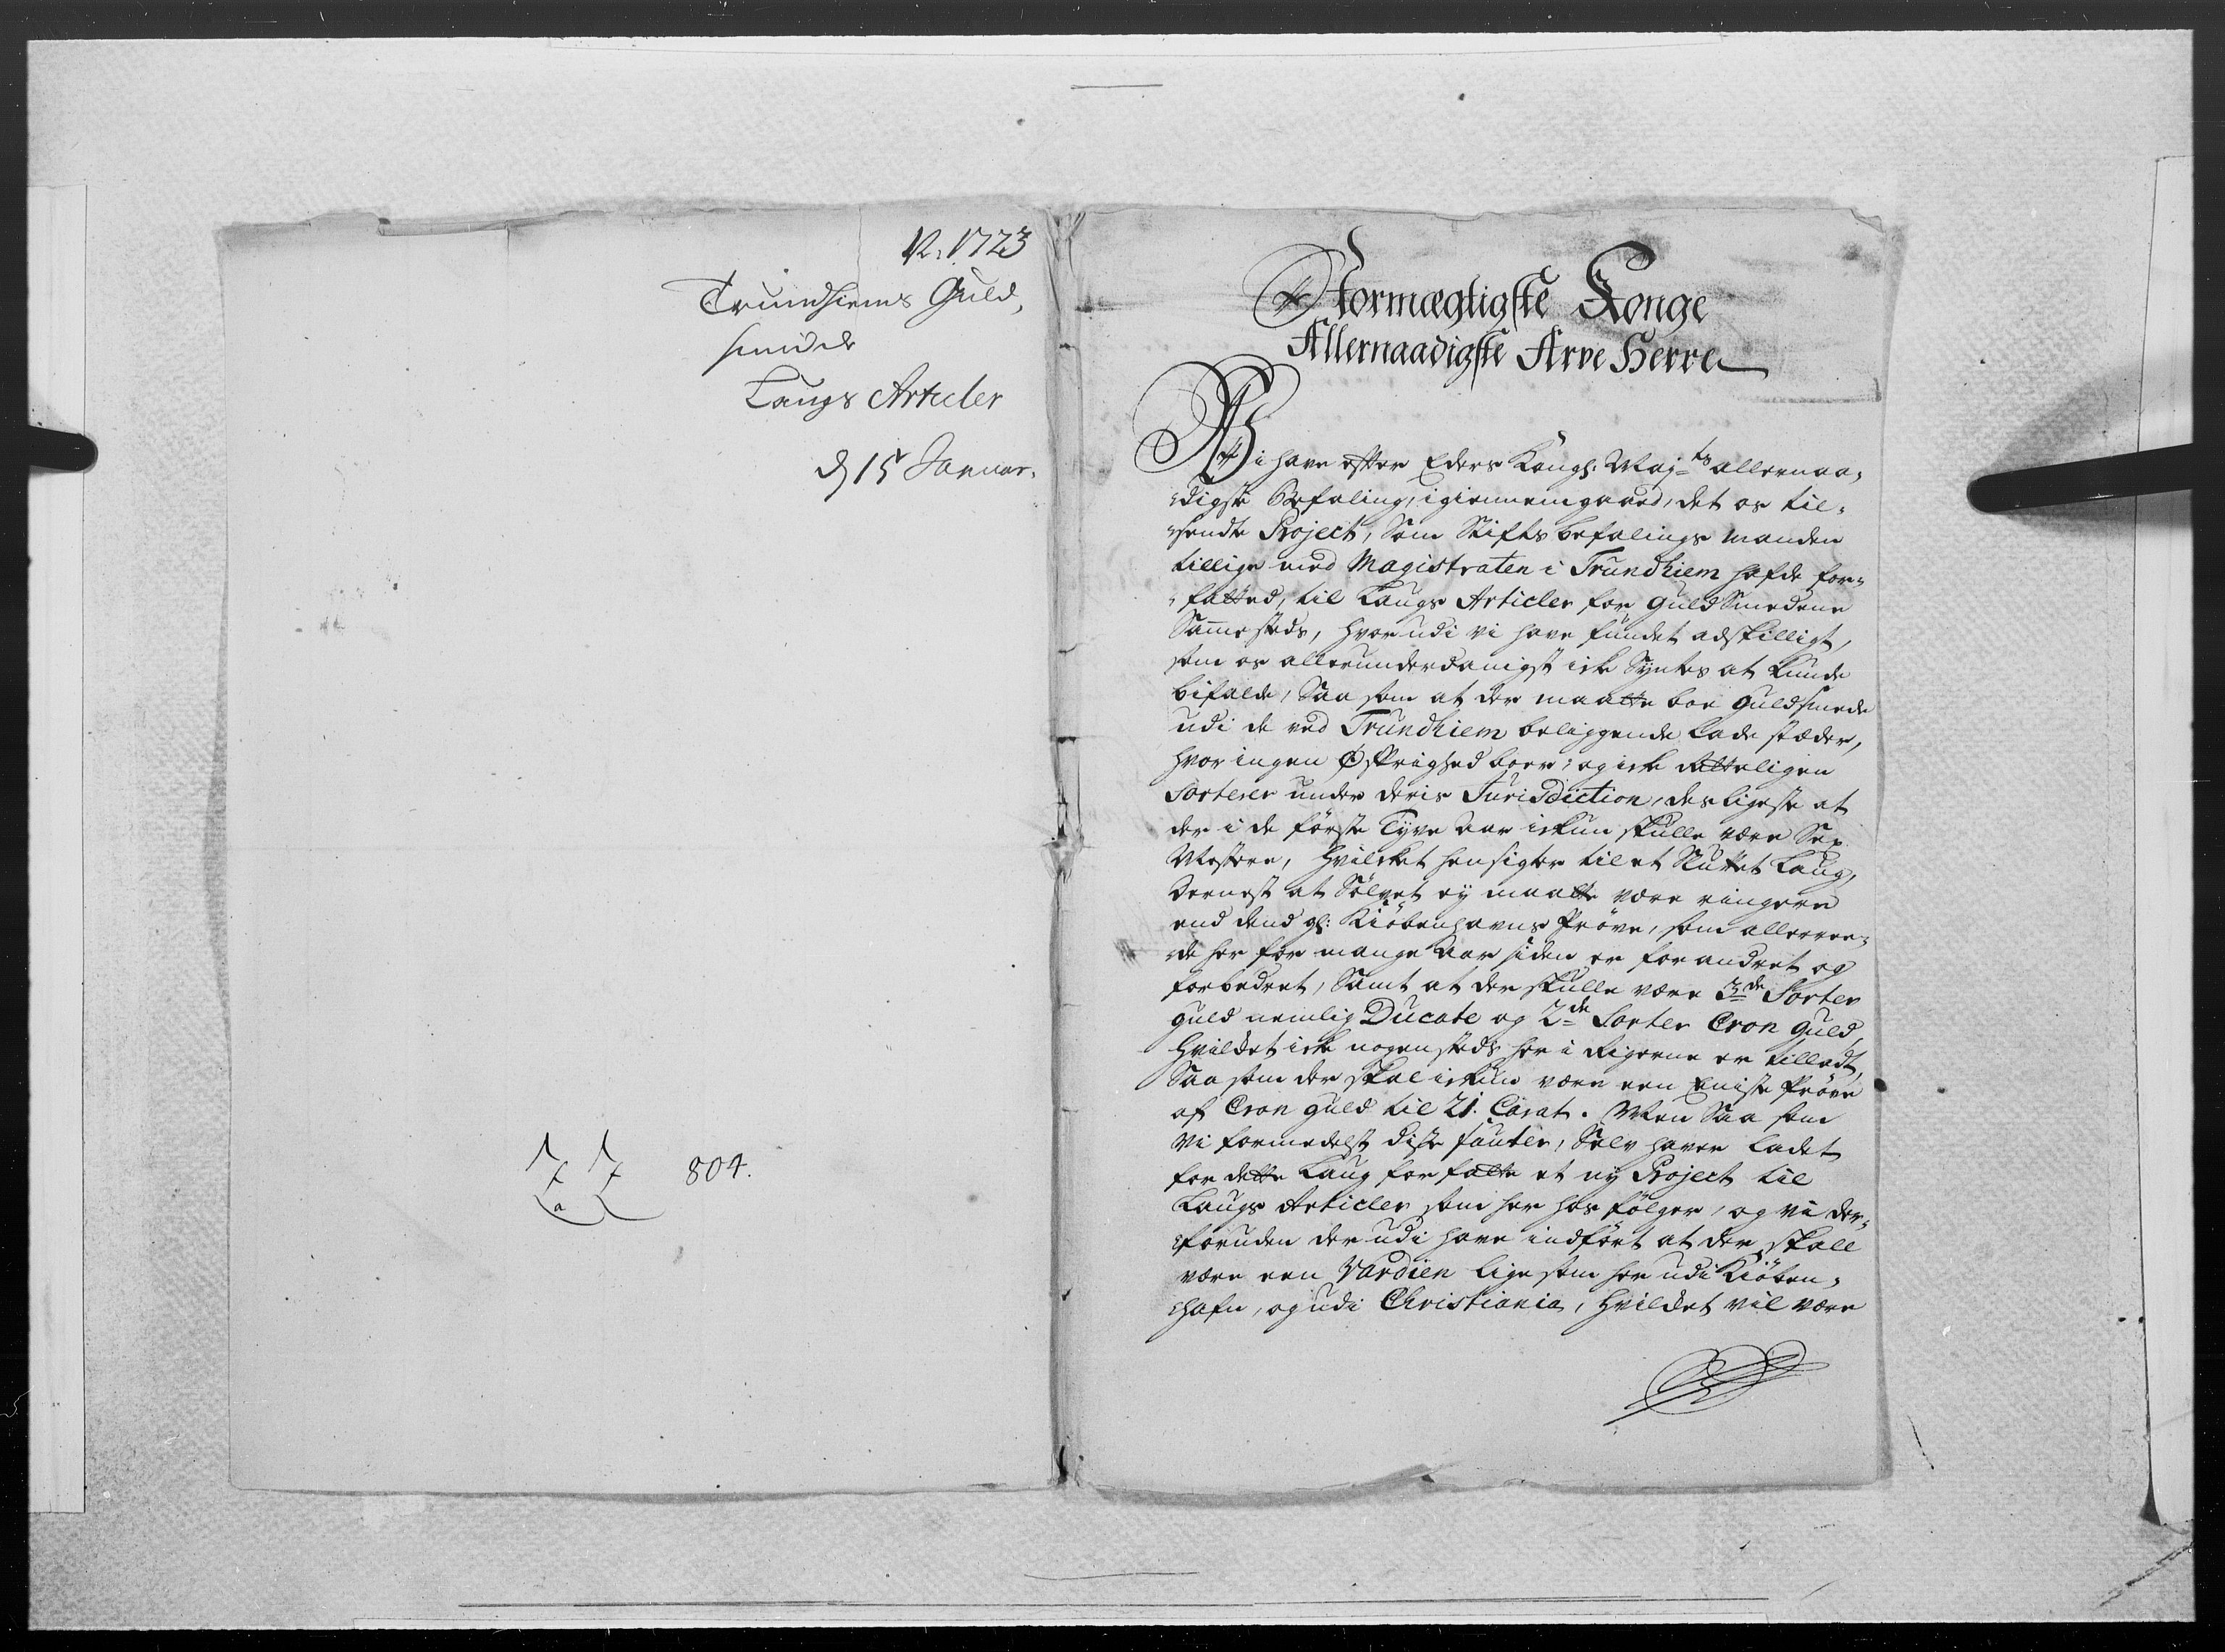 N. 1723
Trundhiems Guld,
smide
Laugs Articler
d 15 Januar.
77 804.
a
Stormægtigste Konge
Allernaadigste Arve Herre
Vi have efter Eders Kongl: Maj-ts allernaa,
digste Befaling, igiennemgaaed, det os til,
sendte Project, Som Stifts befalings manden
tillige med Magistraten i Trundhiem hafde for,
fatted, til Laugs Articler for guldSmedene
Sammesteds, hvorudi vi have fundet adskilligt,
som os allerunderdanigst icke Syntes at kunde
bifalde, Saa som at der maatte boe guldsmede
udi de ved Trundhiem beliggende lade stæder,
hvor ingen Øfrighed boer, og icke retteligen
Sorterer under deris Jurisdiction, desligeste at
der i de förste Tyve Aar ickun skulle være Sex
Mestere, hvilcket hensigter til et Sluttet Laug,
dernest at Sölvet ey maatte være ringere
end dend gl: Kiöbenhavns Pröve, som allerree,
de her for mange Aar siden er forandret og
forbedret, Samt at der skulle være 3de Sorter
guld nemlig Ducate og 2de Sorter Cron guld,
hvilcket icke nogensteds her i Rigerne er tilladt,
Saa som der skal ickun være een Eniste Pröve
af Cron guld til 21. Carat. Men Saa som
Vi formedelst disse fauter, Selv haver ladet
for dette Laug forfatte et ny Project til
Laugs Articler som her hos fölger, og vi der,
foruden der udi have indfört at der skall
være een Vardien ligesom her udi Kiöben,
hafn, og udi Christiania, hvilcket vil være